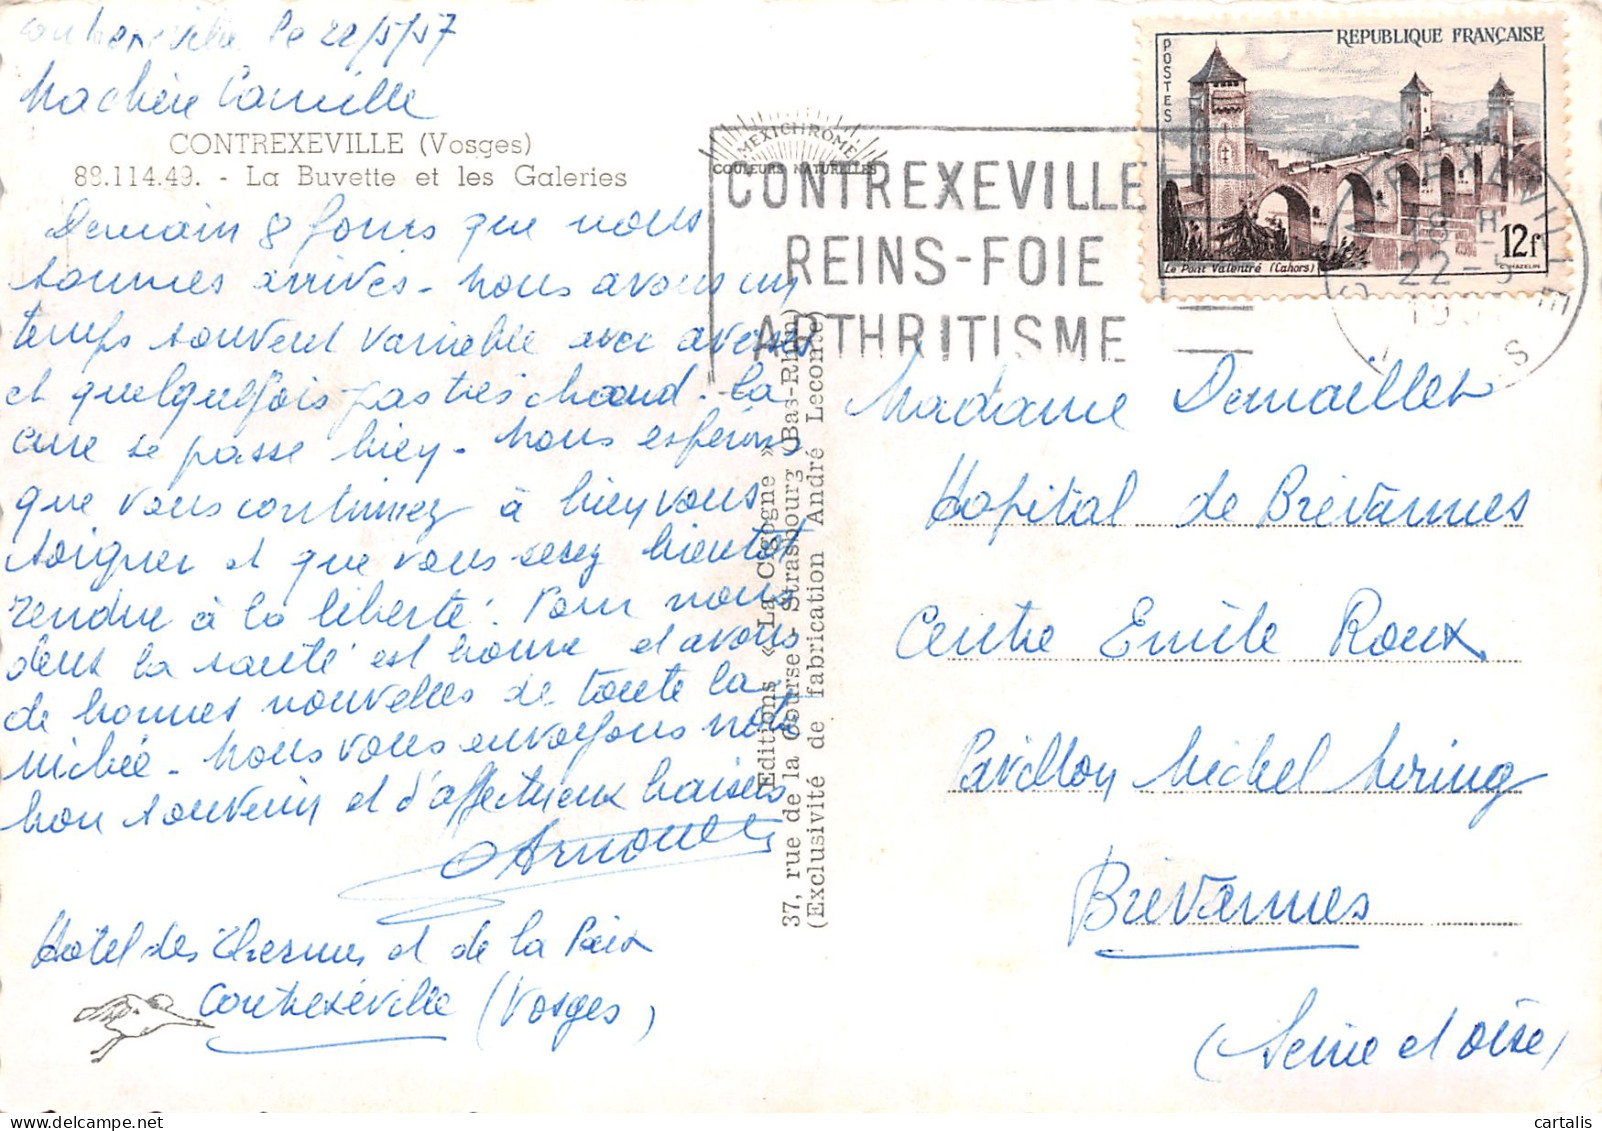 Contrexeville le 22/5/57
Ma chère Camille
CONTREXEVILLE (Vosges)
88.114.49. - La Buvette et les Galeries
Demain 8 jours que nous
sommes arrivés - nous avons un
temps souvent variable avec averses
et quelquefois pas très chaud. La
cure se passe bien - nous espérons
que vous continuez à bien vous
soigner et que vous serez bientôt
rendue à la liberté. Pour nous
deux la santé est bonne et avons
de bonnes nouvelles de toute la
nichée - nous vous envoyons notre
bon souvenir et d'affectueux baisers
Hôtel des Thermes et de la Paix
Contrexéville (Vosges)
MEXICHROME
COULEURS NATURELLES
Editions « La Cigogne »
37, rue de la Course - Strasbourg (Bas-Rhin)
(Exclusivité de fabrication André Leconte)
CONTREXEVILLE
REINS-FOIE
ARTHRITISME
REPUBLIQUE FRANÇAISE
POSTES
Le Pont Valentré (Cahors)
12f
18 H
22-5
VOSGES
Madame Demaillet
Hopital de Brévannes
Centre Emile Roux
Pavillon Michel Mering
Brévannes
(Seine et Oise)
cartalis